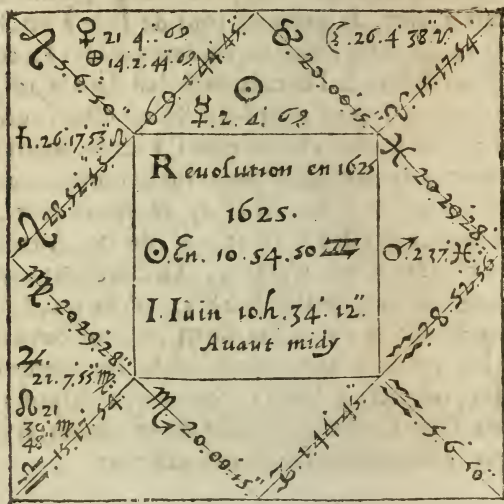 ♀ 21 4. ♋
⊕ 14.2.44 ♋
♌ 5.6.50''
♋ 1.44.45''
☉
☿.2.4.♋
♉ 20.00.15''
☾.26.4.38''.♈
♈ 15.17.54
♄.26.17.53'' ♌
♌ 28.52.55
♓ 20.29.28
Reuolution en 1625
1625.
☉.En. 10.54.50 ♊
1. Iuin 10.h.34.12''
Auaut midy
♂.2 37.♓.
♒ 28.52.55
♍ 20.29.28''
♃.
21.7.55'' ♍.
☊ 21
39 ♍
48''
♎ 15.17.54
♏ 20.00.15''
♑ 1.44.45''
♒ 5.6.50